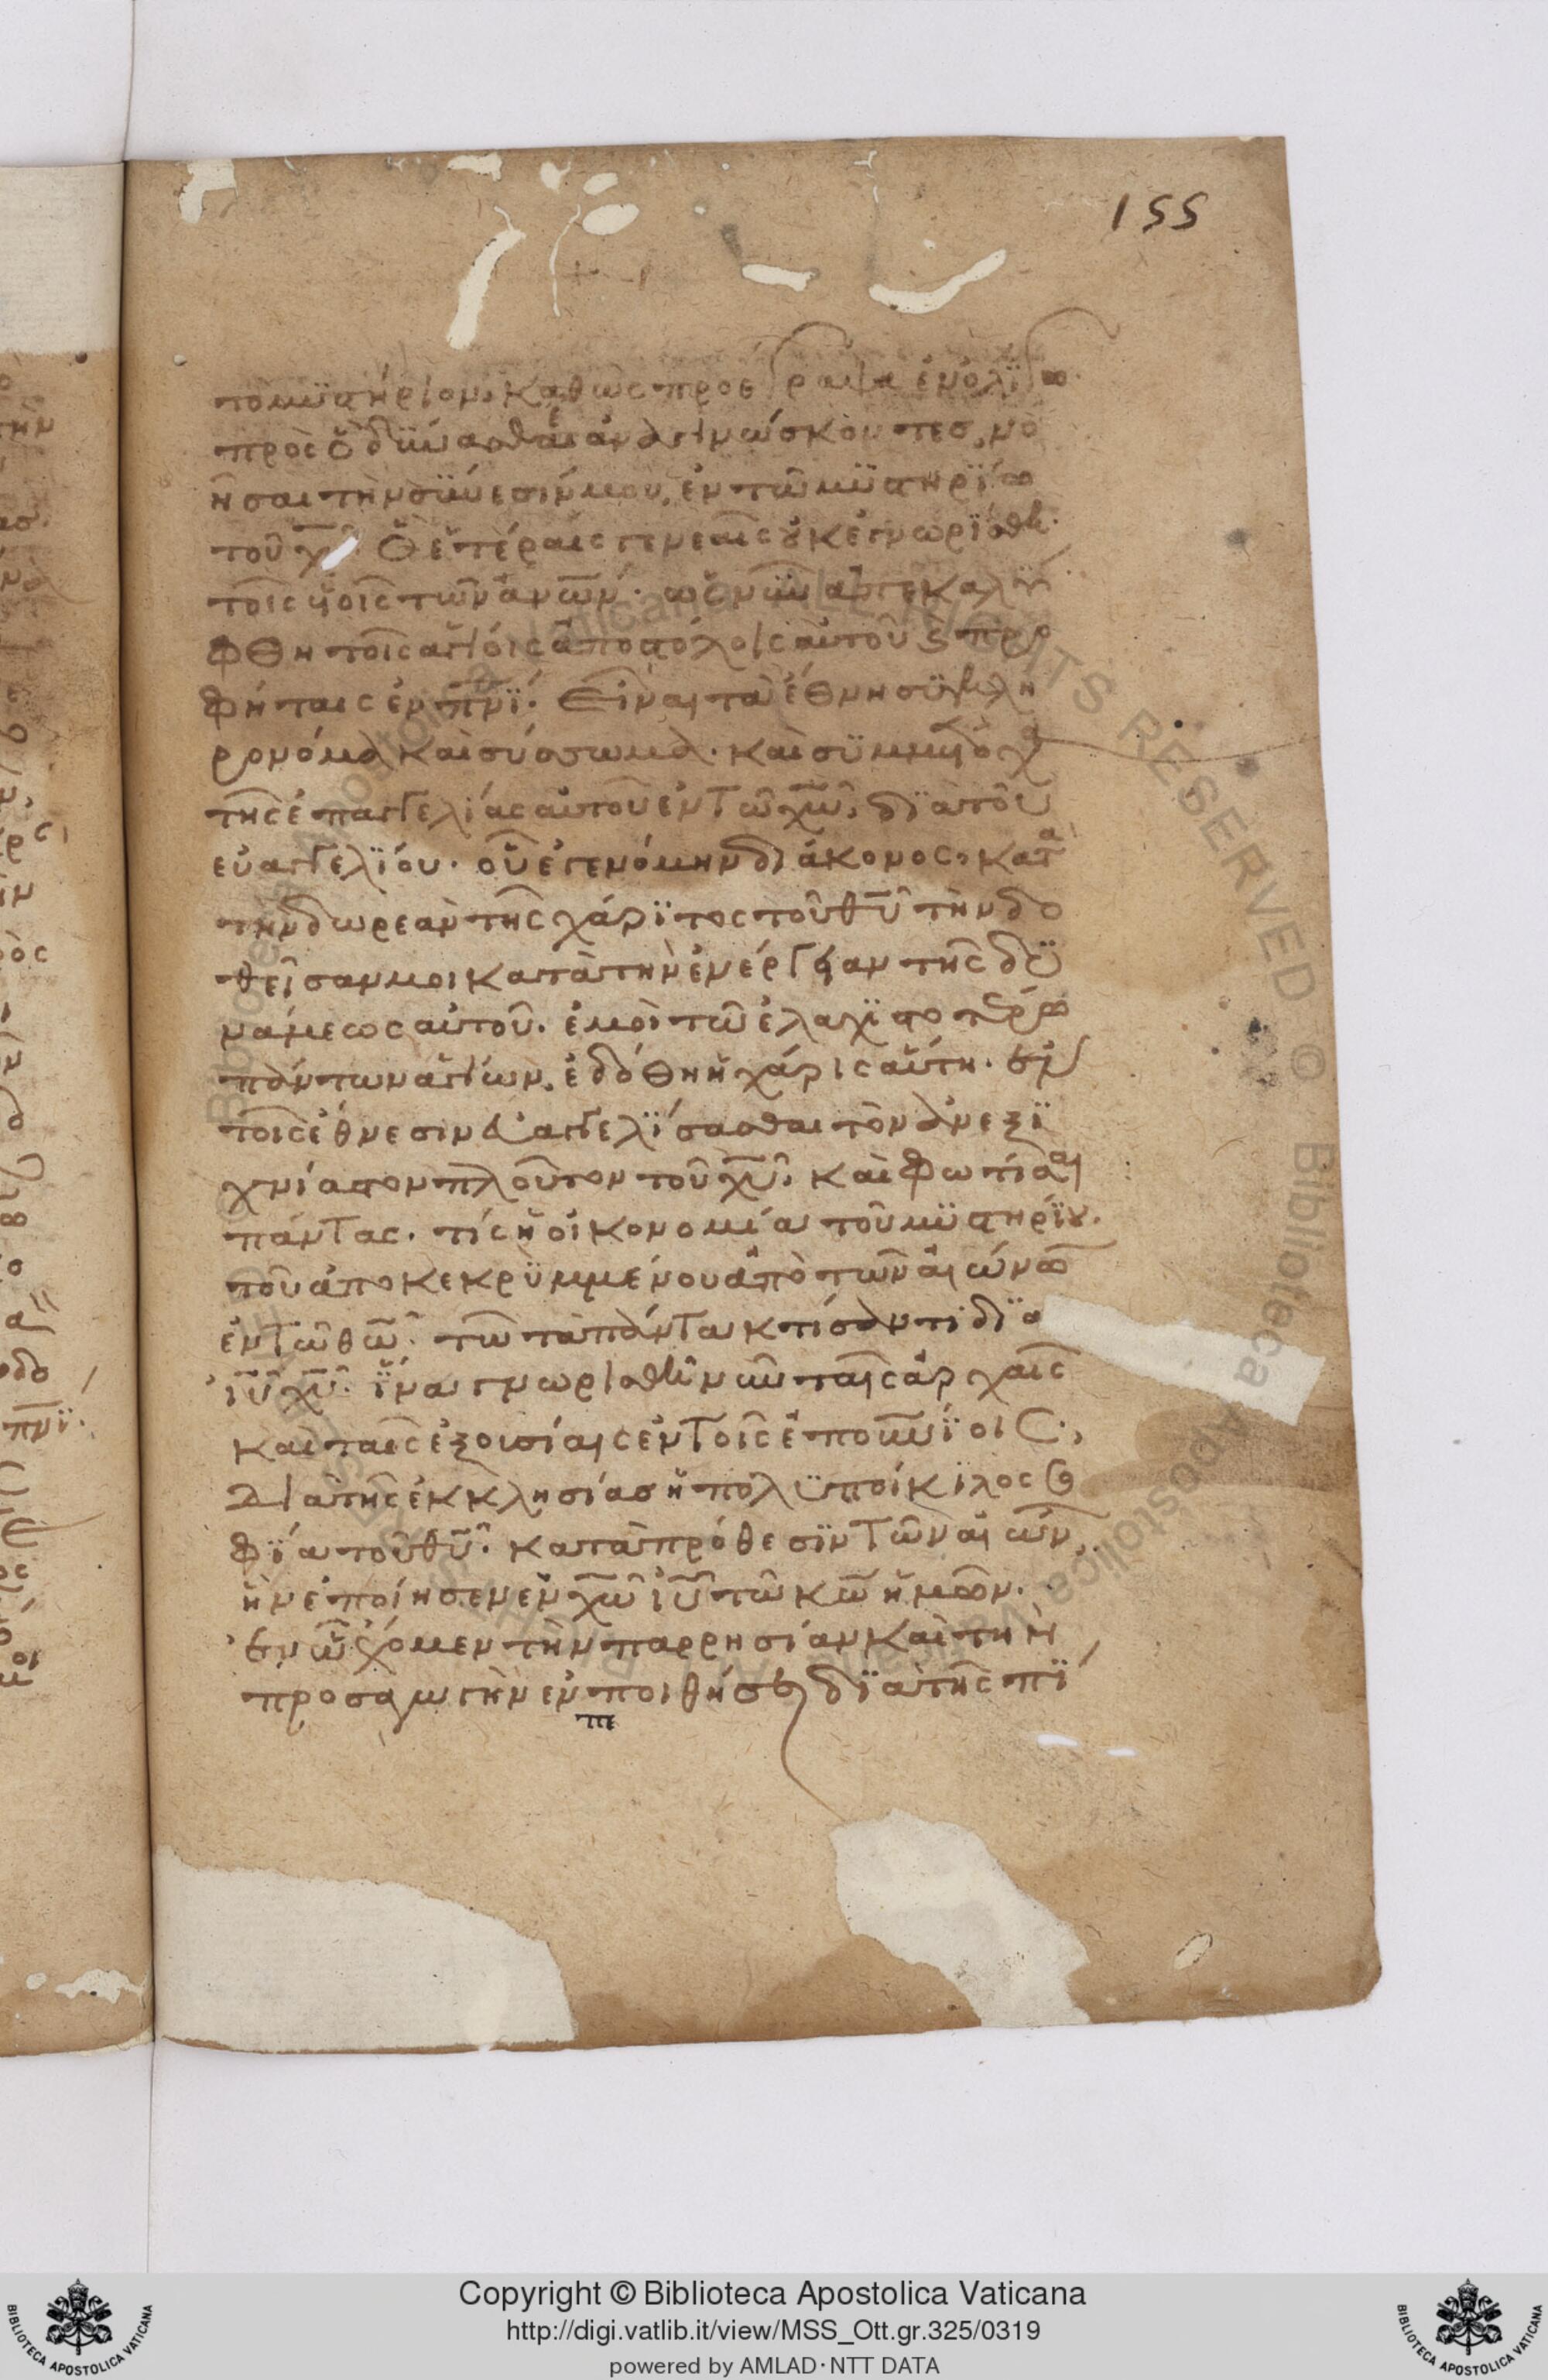 155
το μϋστήριον, καθὼς προέγραψα ἐν ὀλίγω.
πρὸς ὃ δϋνασθαι ἀναγινώσκοντες, νο
ῆσαι τὴν σϋνεσίν μου, ἐν τῶ μϋστηρΐω
τοῦ χυ ὃ ἑτέραις γενεαῖς οὐκ ἐγνωρΐσθη.
τοῖς υἱοῖς τῶν ἀνων. ὡς νῦν ἀπεκαλϋ
φθη τοῖς ἁγίοις ἀποστόλοις αὐτοῦ κ προ
φήταις ἐν πνΐ. εἶναι τὰ ἔθνη σϋγκλη
ρονόμα καὶ σύσσωμα. καὶ σϋμμέτοχα
τῆς ἐπαγγελίας αὐτοῦ ἐν τῶ χω, δϊὰ τοῦ
εὐαγγελΐου. οὗ ἐγενόμην διάκονος, κατὰ
τὴν δωρεὰν τῆς χάρϊτος τοῦ θυ τὴν δο
θεῖσαν μοι κατὰ τὴν ἐνέργειαν τῆς δϋ
νάμεως αὐτοῦ. ἐμοὶ τῶ ἐλαχϊστοτέρω
πάντων ἁγίων, ἐδόθη ἡ χάρις αὕτη. ἐν
τοῖς ἔθνεσιν εὐαγγελΐσασθαι τὸν ἀνεξϊ
χνίαστον πλοῦτον τοῦ χυ, καὶ φωτίσαι
πάντας. τίς ἡ οἰκονομία τοῦ μϋστηρΐου.
τοῦ ἀποκεκρϋμμένου ἀπὸ τῶν αἰώνων
ἐν τῶ θω. τῶ τὰ πάντα κτίσαντι δϊα
ιυ χυ. ἵνα γνωρισθῆ νῦν ταῖς ἀρχαῖς
καὶ ταῖς ἐξουσίαις ἐν τοῖς ἐπουνΐοις,
Διὰ τῆς ἐκκλησίας ἡ πολϋποίκϊλος σο
φΐα τοῦ θυ. κατὰ πρόθεσϊν τῶν αἰώνων,
ἣν ἐποίησεν ἐν χω ιυ τῶ κω ἡμῶν.
ἐν ὧ ἔχομεν τὴν παρρησίαν καὶ τὴν
προσαγωγὴν ἐν ποιθήσει διὰ τῆς πΐ
πε
Copyright © Biblioteca Apostolica Vaticana
http://digi.vatlib.it/view/MSS_Ott.gr.325/0319
powered by AMLAD·NTT DATA